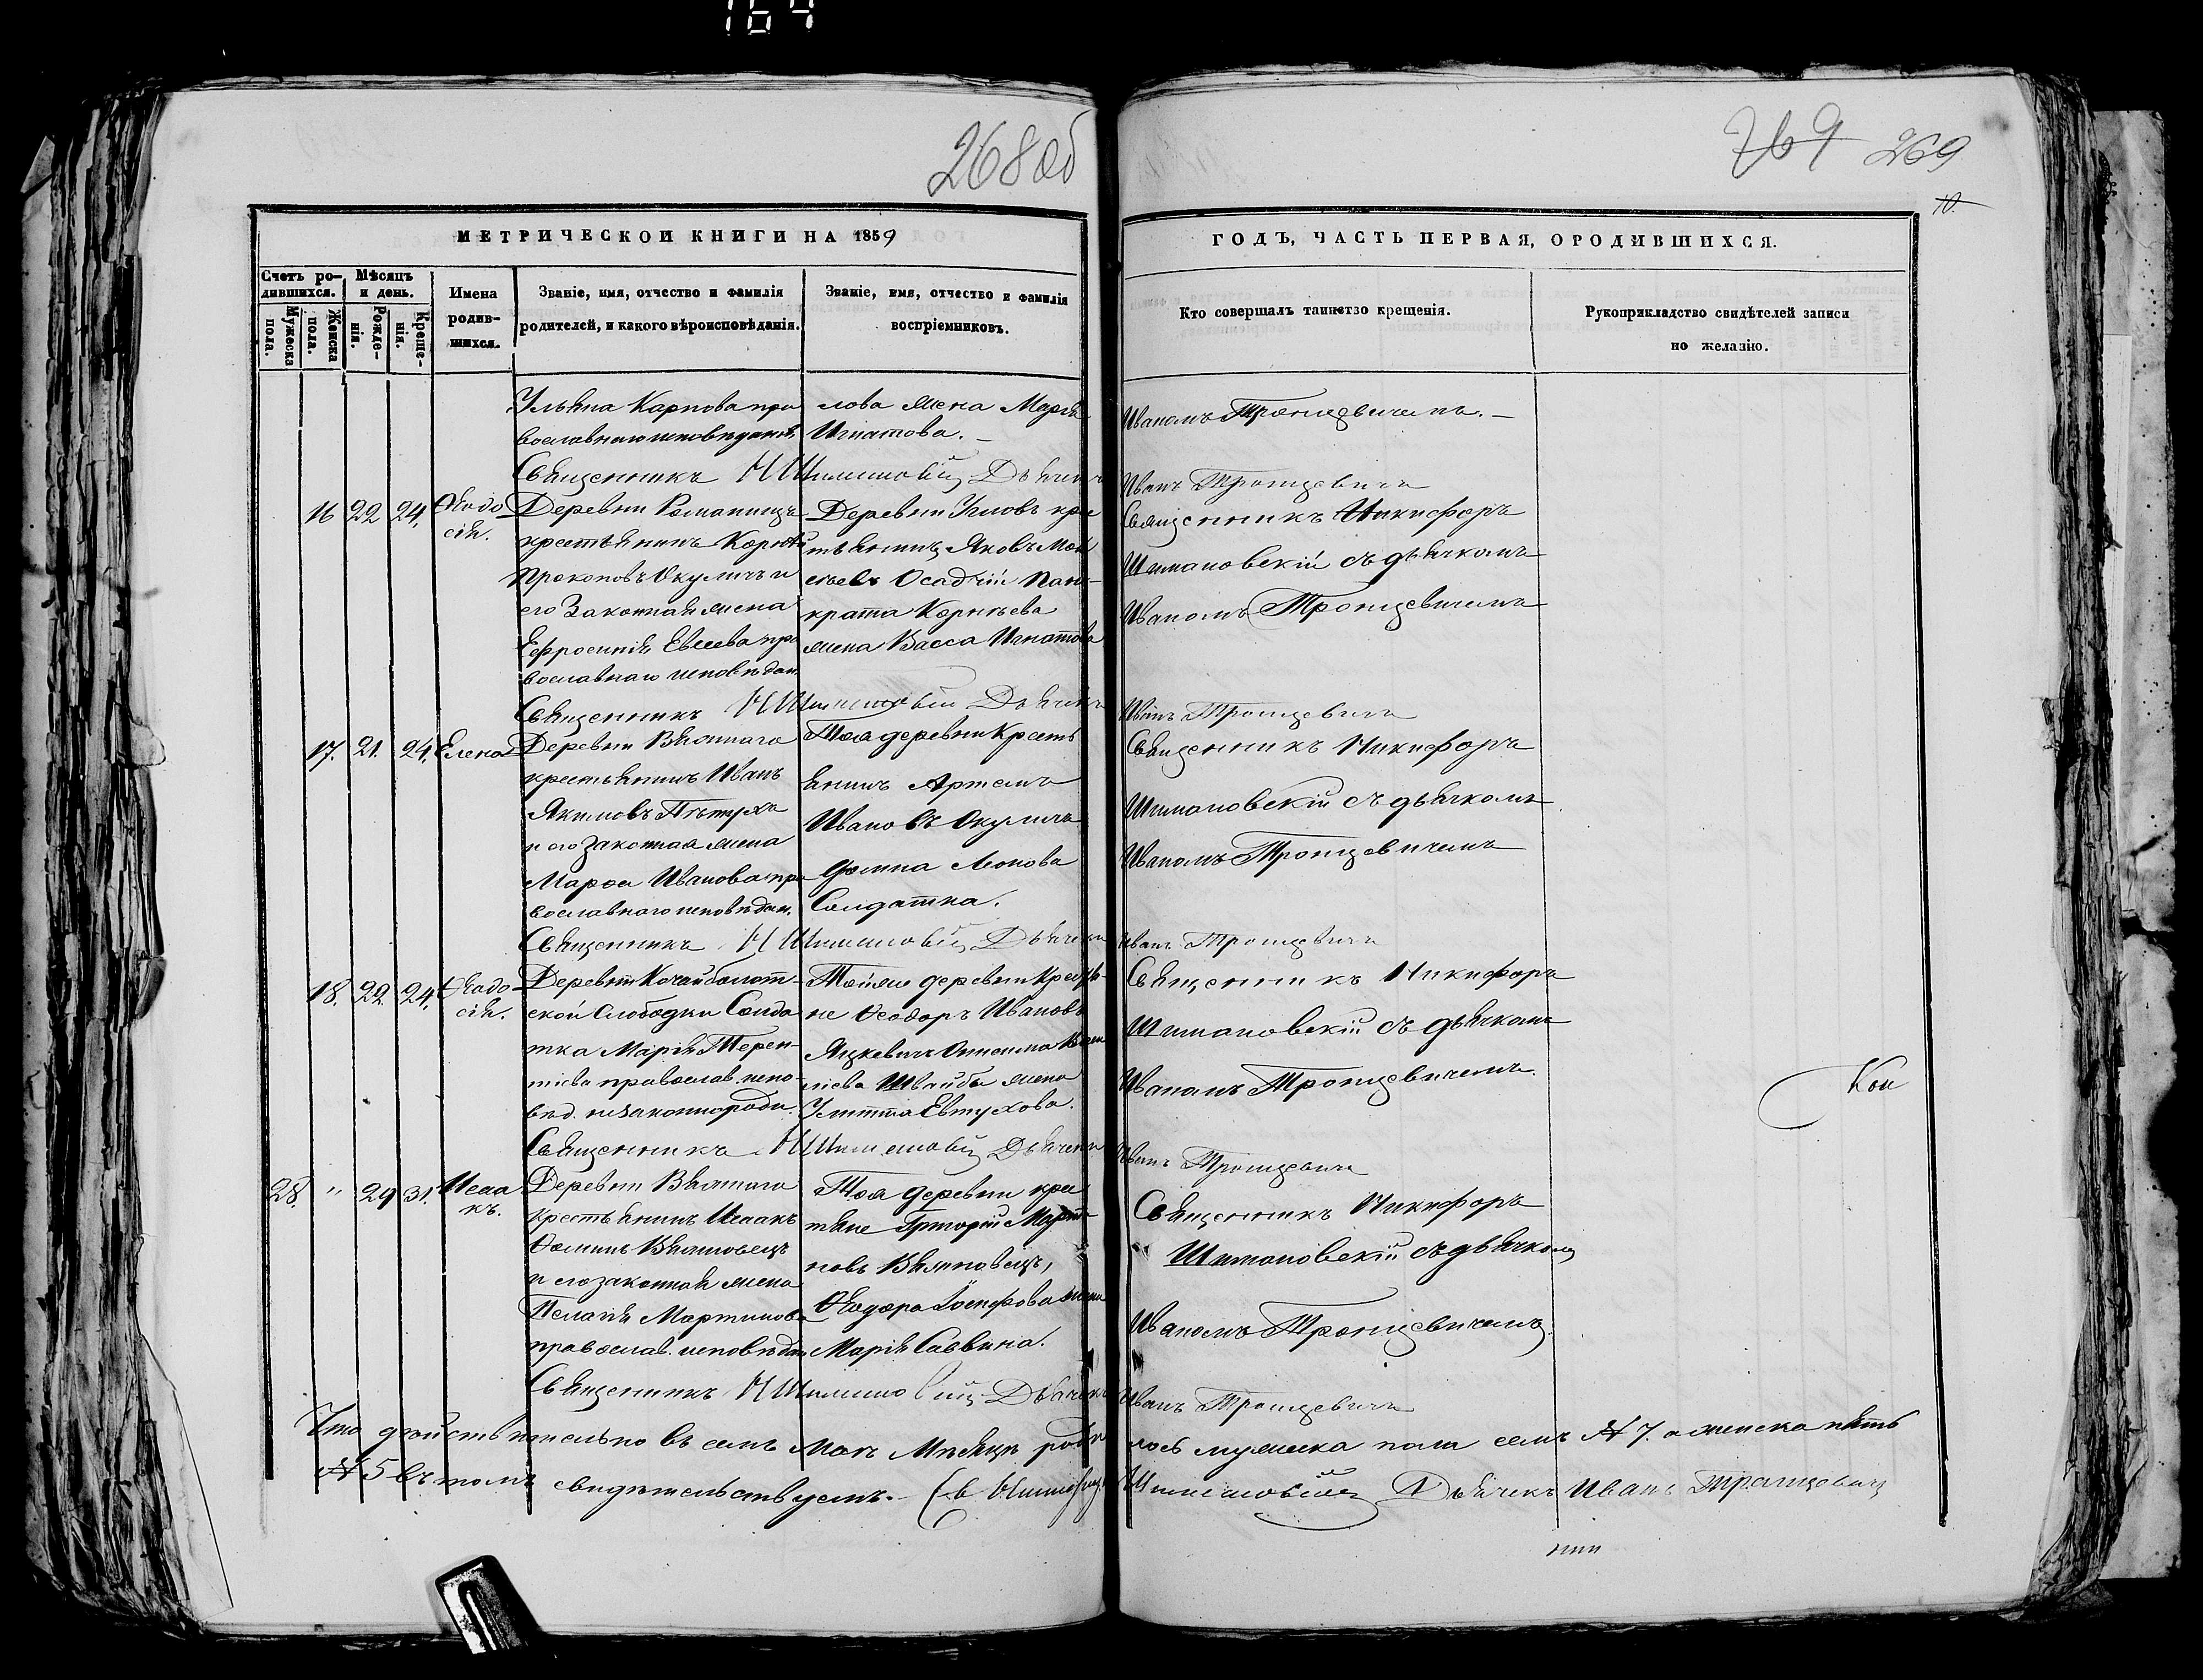 164
268 об
769 269
10.
МЕТРИЧЕСКОЙ КНИГИ НА 1859
ГОДЪ, ЧАСТЬ ПЕРВАЯ, О РОДИВШИХСЯ.
Счетъ ро-
дившихся.
Мужеска пола.
Женска пола.
Мѣсяцъ
и день.
Рожде-
нія.
Креще-
нія.
Имена
родив-
шихся.
Званіе, имя, отчество и фамилія
родителей, и какого вѣроисповѣданія.
Званіе, имя, отчество и фамилія
воспріемниковъ.
Кто совершалъ таинство крещенія.
Рукоприкладство свидѣтелей записи
по желанію.
Ульяна Карпова пра
вославнаго исповѣданія
лова жена Марія
Игнатова.
Иваномъ Троицевичемъ.
Священникъ Н Шимановскій Дьячекъ
Иванъ Троицевичъ
16 22 24, Ѳеодо
сія.
Деревни
крестьянинъ Корнѣй
Прокоповъ Окуличъ и
его законная жена
Ефросинія Евсеева пра
вославнаго исповѣдан.
Деревни Угловъ крес
тьянинъ Яковъ
Осадчій Пан-
крата Корнѣева
жена Васса Игнатова
Священникъ Никифоръ
Шимановскій съ дьячкомъ
Иваномъ Троицевичемъ
Священникъ Н Шимановскій Дьячекъ
Иванъ Троицевичъ
17. 21. 24, Елена
Деревни
крестьянинъ Иванъ
Якимовъ Пѣтухъ
и его законная жена
Марѳа Иванова пра
вославнаго исповѣдан.
Тоя деревни Кресть
янинъ Артемъ
Ивановъ Окуличъ
Домна Леонова
Солдатка.
Священникъ Никифоръ
Шимановскій съ дьячкомъ
Иваномъ Троицевичемъ
Священникъ Н Шимановскій Дьячекъ
Иванъ Троицевичъ
18. 22 24, Ѳеодо-
сія.
Деревни Кочанболот-
ской Слободки Солда
тка Марія Терен-
тіева православ. испо-
вѣд. незаконнорожд.
Тойже деревни Крестья-
не Ѳеодоръ Ивановъ
Яцкевичъ Онисима
Швайбы жена
Улитта Евтухова.
Священникъ Никифоръ
Шимановскій съ дьячкомъ
Иваномъ Троицевичемъ
Кон
Священникъ Н Шимановскій Дьячекъ
Иванъ Троицевичъ
28. " 29 31. Исаа
къ.
Деревни
крестьянинъ Исаакъ
Ѳоминъ
и его законная жена
Пелагія Мартинова
православ. исповѣдан
Тоя деревни крес
тьяне Григорій Марти-
новъ
Ѳеодора Іосифова жена
Марія Саввина.
Священникъ Никифоръ
Шимановскій съ дьячкомъ
Иваномъ Троицевичемъ
Священникъ Н Шимановскій Дьячекъ
Иванъ Троицевичъ
Что дѣйствительно въ семъ Маѣ Мѣсяцѣ роди
лось мужеска пола семь № 7. а женска пять
№ 5 въ томъ свидѣтельствуемъ.
Шимановскій Дьячекъ Иванъ Троицевичъ